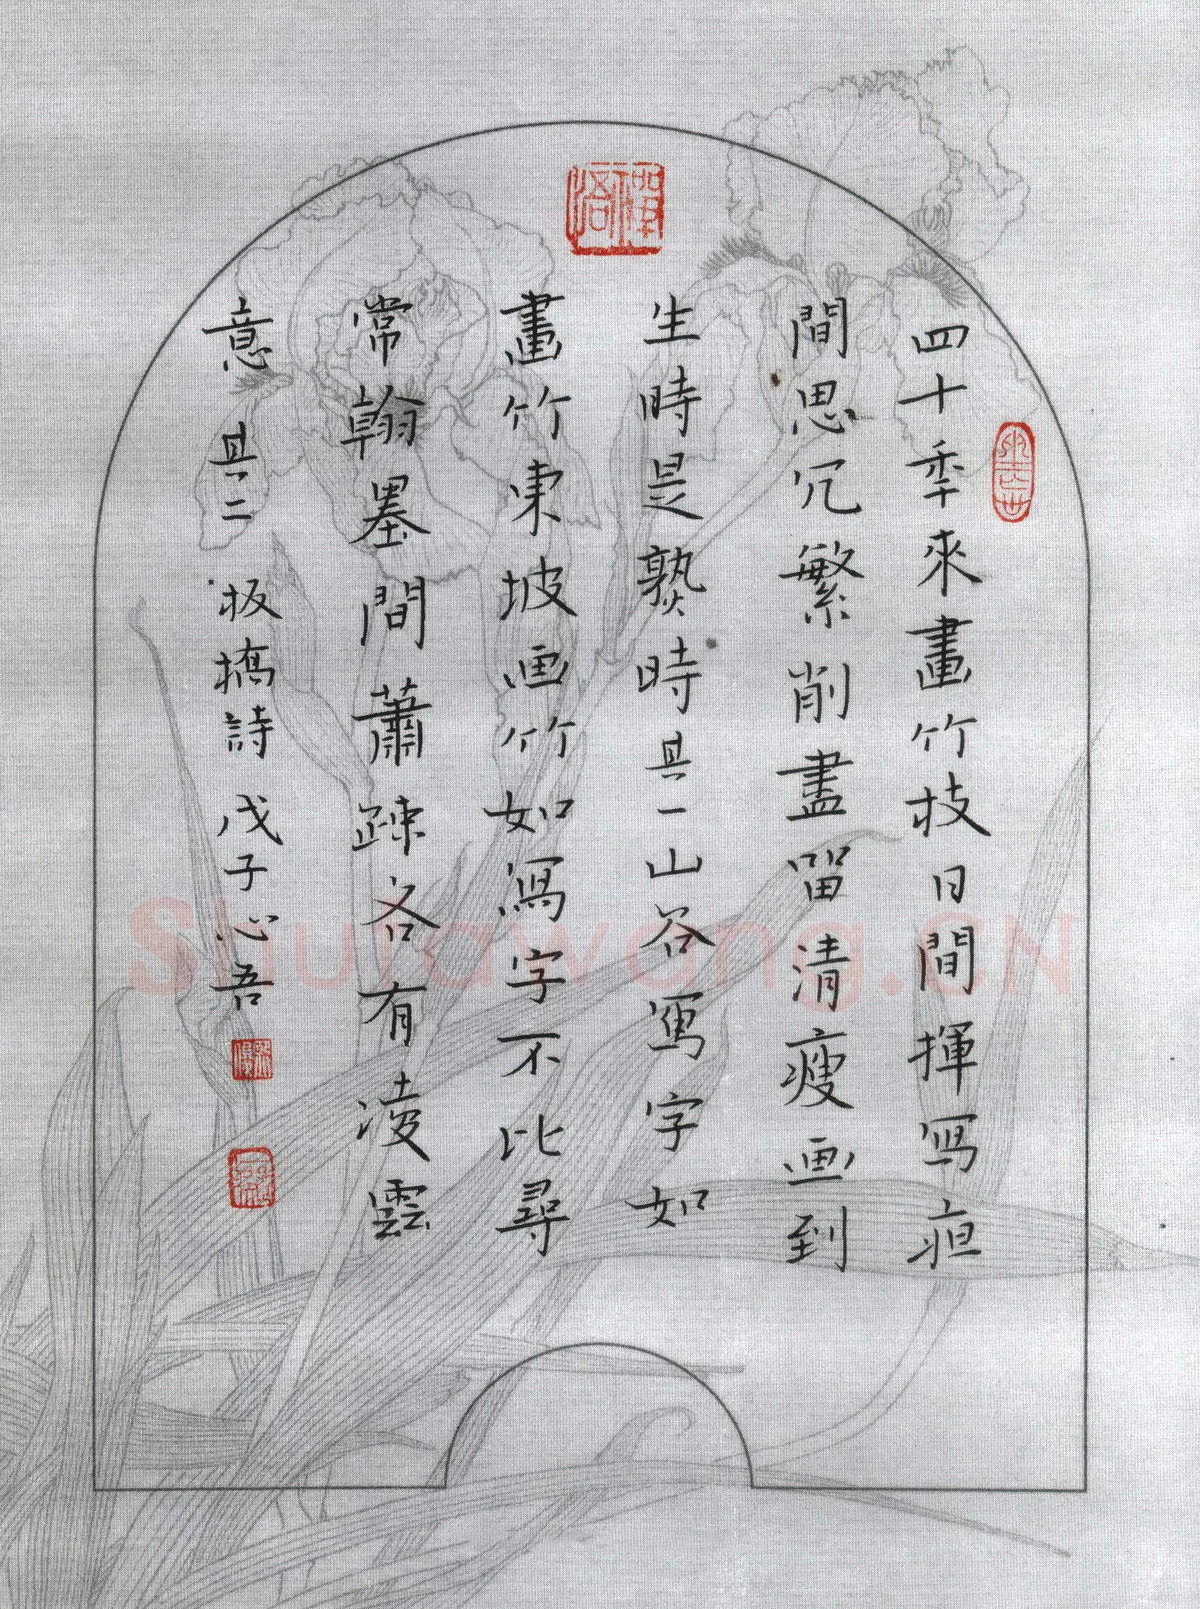 四十季來畫竹枝日間揮寫夜
間思冗繁削盡留清瘦画到
生時是熟時其一山谷寫字如
畫竹東坡画竹如寫字不比尋
常翰墨間蕭疎各有凌雲
意其二板橋詩戊子心吾
Shufawang.CN